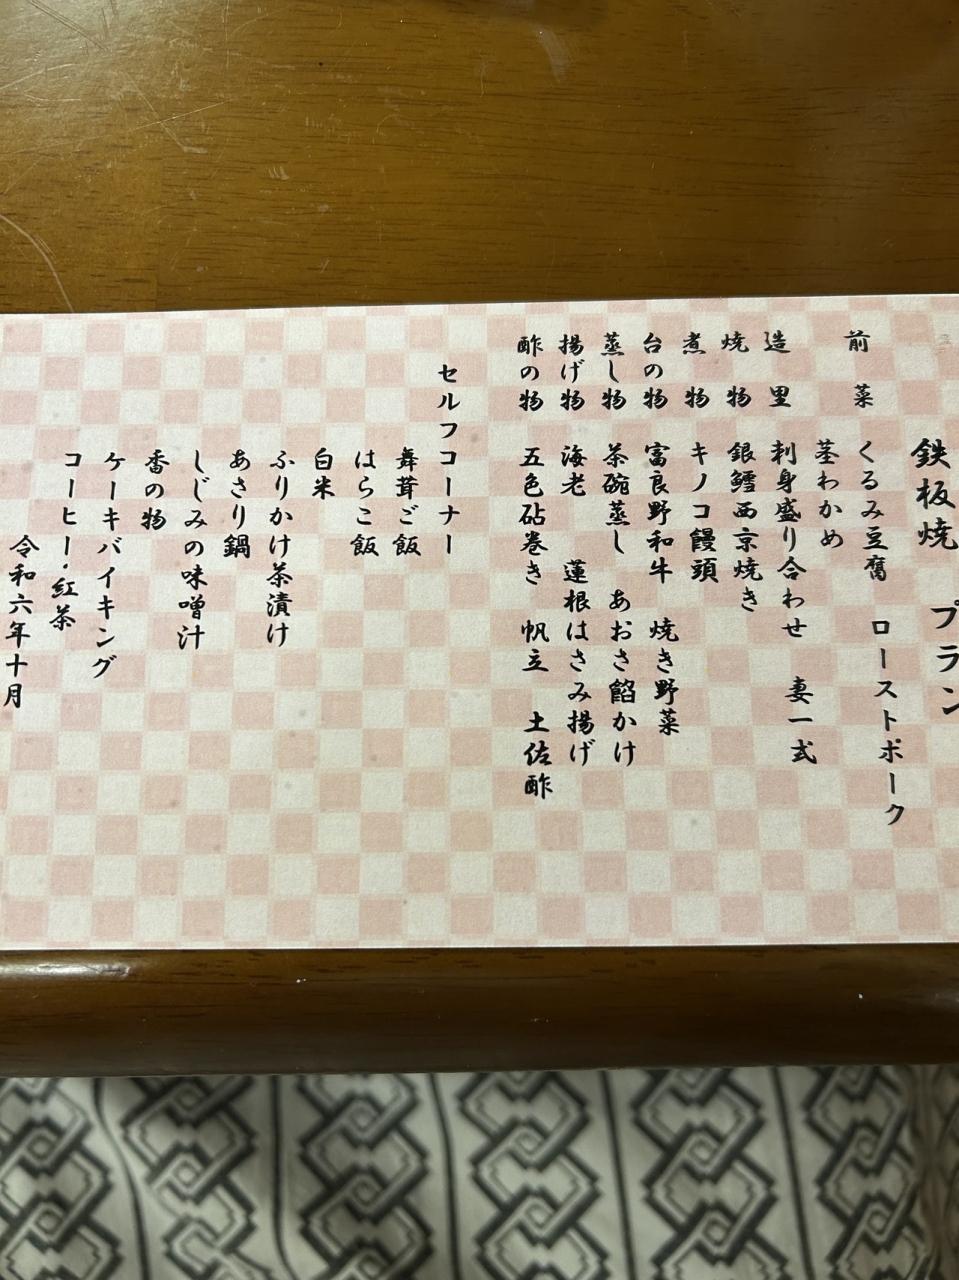 鉄板焼　プラン
前菜　くるみ豆腐　ローストポーク
茎わかめ
造里　刺身盛り合わせ　妻一式
焼物　銀鱈西京焼き
煮物　キノコ饅頭
台の物　富良野和牛　焼き野菜
蒸し物　茶碗蒸し　あおさ餡かけ
揚げ物　海老　蓮根はさみ揚げ
酢の物　五色砧巻き　帆立　土佐酢
セルフコーナー
舞茸ご飯
はらこ飯
白米
ふりかけ茶漬け
あさり鍋
しじみの味噌汁
香の物
ケーキバイキング
コーヒー・紅茶
令和六年十月